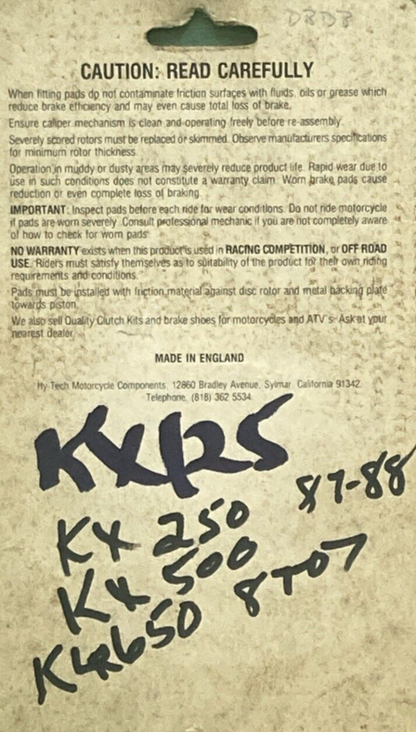 DBDB
CAUTION: READ CAREFULLY
When fitting pads do not contaminate friction surfaces with fluids, oils or grease which
reduce brake efficiency and may even cause total loss of brake.
Ensure caliper mechanism is clean and operating freely before re-assembly.
Severely scored rotors must be replaced or skimmed. Observe manufacturers specifications
for minimum rotor thickness.
Operation in muddy or dusty areas may severely reduce product life. Rapid wear due to
use in such conditions does not constitute a warranty claim. Worn brake pads cause
reduction or even complete loss of braking.
IMPORTANT: Inspect pads before each ride for wear conditions. Do not ride motorcycle
if pads are worn severely. Consult professional mechanic if you are not completely aware
of how to check for worn pads.
NO WARRANTY exists when this product is used in RACING COMPETITION, or OFF ROAD
USE. Riders must satisfy themselves as to suitability of the product for their own riding
requirements and conditions.
Pads must be installed with friction material against disc rotor and metal backing plate
towards piston.
We also sell Quality Clutch Kits and brake shoes for motorcycles and ATV's. Ask at your
nearest dealer.
MADE IN ENGLAND
Hy-Tech Motorcycle Components, 12860 Bradley Avenue, Sylmar, California 91342.
Telephone, (818) 362 5534.
KX125
KX 250 87-88
KX 500
KLR650 8707